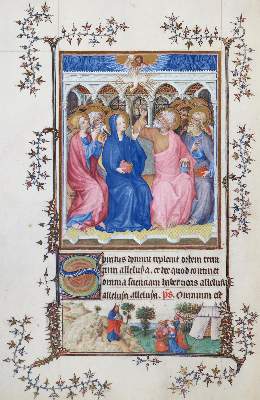 Spiritus domini replevit orbem terra
rum alleluya. et hoc quod continet
omnia scientiam habet vocis alleluya
alleluya alleluya. ps. Omnium est